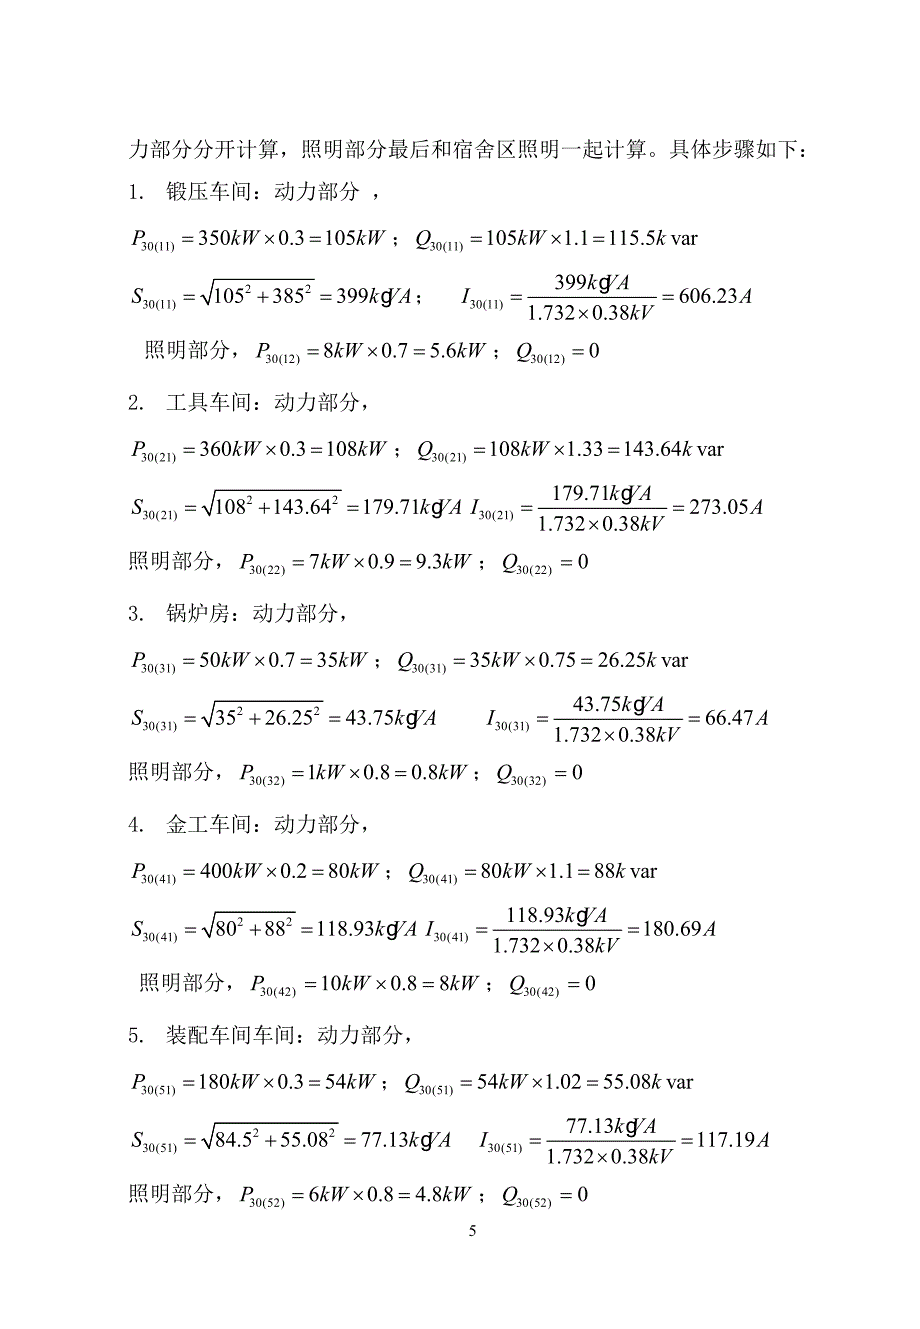 力部分分开计算，照明部分最后和宿舍区照明一起计算。具体步骤如下：
1. 锻压车间：动力部分 ，
P30(11) = 350kW × 0.3 = 105kW ； Q30(11) = 105kW × 1.1 = 115.5k var
S30(11) = √(105² + 385²) = 399kgVA； I30(11) = 399kgVA / 1.732 × 0.38kV = 606.23A
照明部分， P30(12) = 8kW × 0.7 = 5.6kW ； Q30(12) = 0
2. 工具车间：动力部分，
P30(21) = 360kW × 0.3 = 108kW ； Q30(21) = 108kW × 1.33 = 143.64k var
S30(21) = √(108² + 143.64²) = 179.71kgVA I30(21) = 179.71kgVA / 1.732 × 0.38kV = 273.05A
照明部分， P30(22) = 7kW × 0.9 = 9.3kW ； Q30(22) = 0
3. 锅炉房：动力部分，
P30(31) = 50kW × 0.7 = 35kW ； Q30(31) = 35kW × 0.75 = 26.25k var
S30(31) = √(35² + 26.25²) = 43.75kgVA I30(31) = 43.75kgVA / 1.732 × 0.38kV = 66.47A
照明部分， P30(32) = 1kW × 0.8 = 0.8kW ； Q30(32) = 0
4. 金工车间：动力部分，
P30(41) = 400kW × 0.2 = 80kW ； Q30(41) = 80kW × 1.1 = 88k var
S30(41) = √(80² + 88²) = 118.93kgVA I30(41) = 118.93kgVA / 1.732 × 0.38kV = 180.69A
照明部分， P30(42) = 10kW × 0.8 = 8kW ； Q30(42) = 0
5. 装配车间车间：动力部分，
P30(51) = 180kW × 0.3 = 54kW ； Q30(51) = 54kW × 1.02 = 55.08k var
S30(51) = √(84.5² + 55.08²) = 77.13kgVA I30(51) = 77.13kgVA / 1.732 × 0.38kV = 117.19A
照明部分， P30(52) = 6kW × 0.8 = 4.8kW ； Q30(52) = 0
5